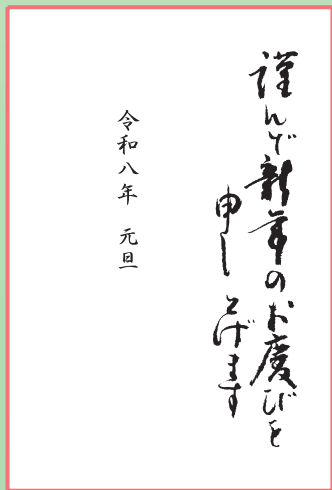 謹んで新年のお慶びを
申し上げます
令和八年 元旦